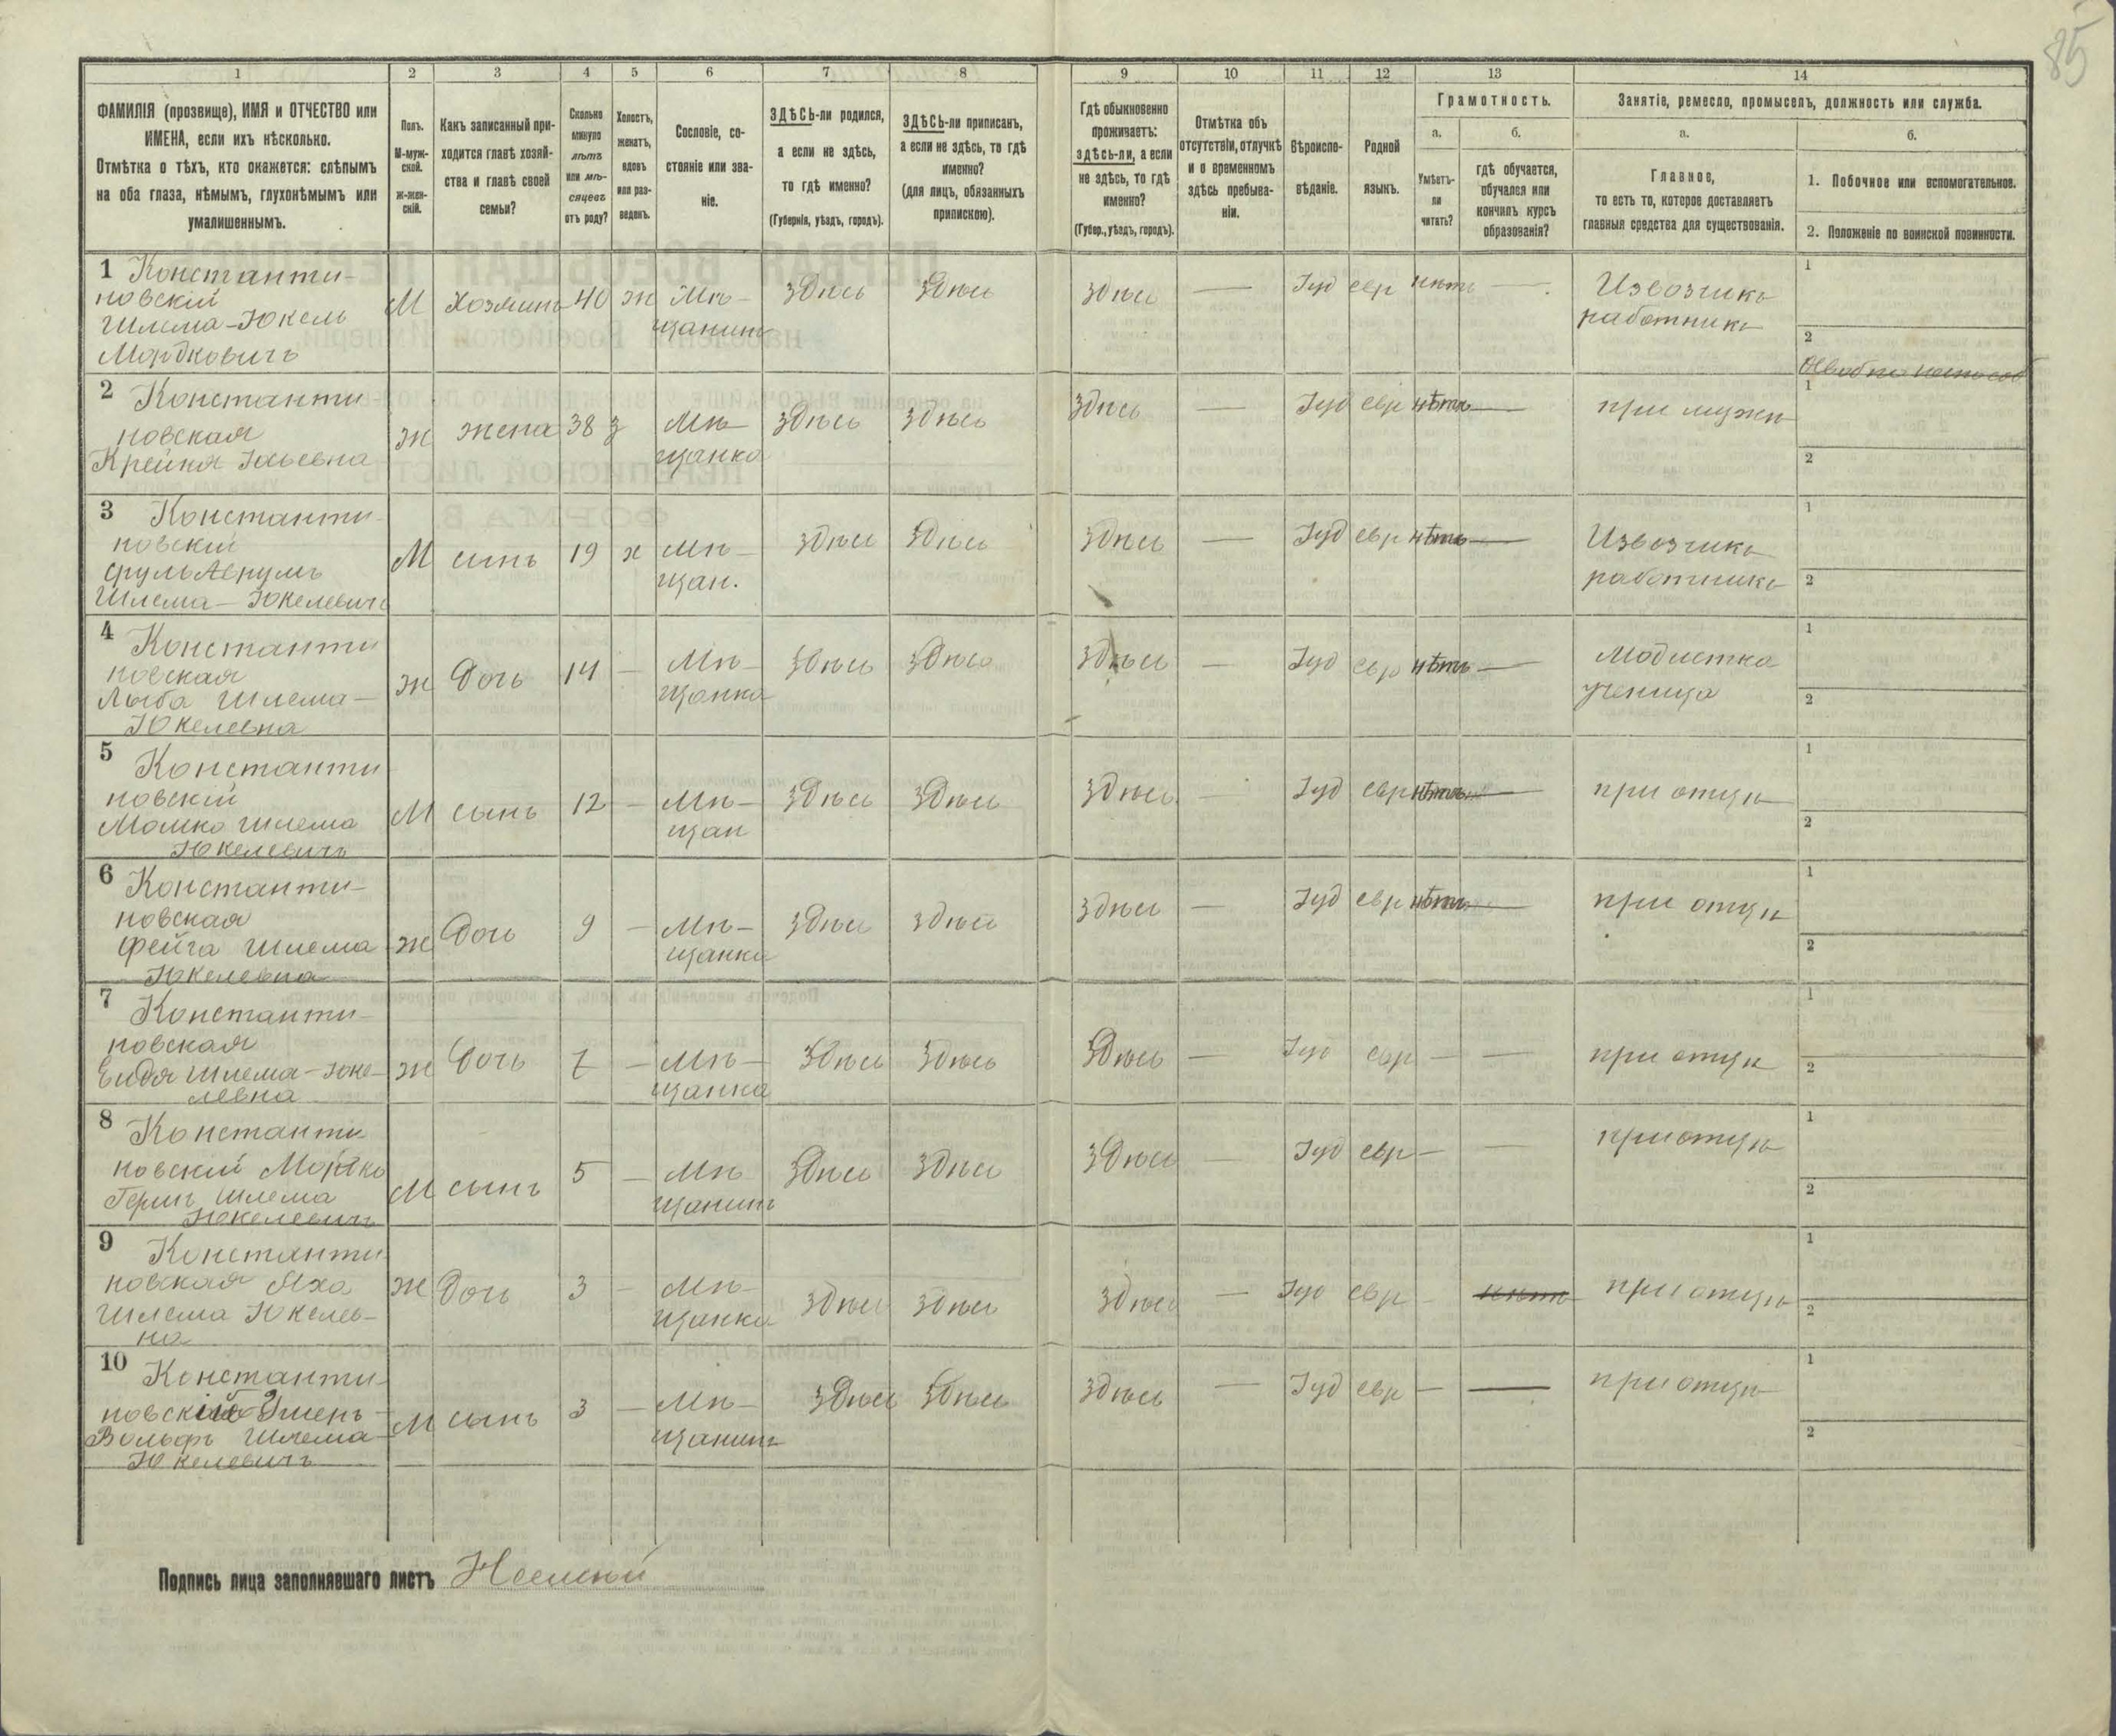 85
1 2 3 4 5 6 7 8 9 10 11 12 13 14
ФАМИЛІЯ (прозвище), ИМЯ и ОТЧЕСТВО или
ИМЕНА, если ихъ нѣсколько.
Отмѣтка о тѣхъ, кто окажется: слѣпымъ
на оба глаза, нѣмымъ, глухонѣмымъ или
умалишеннымъ.
Полъ.
М-муж-
ской.
Ж-жен-
скій.
Какъ записанный при-
ходится главѣ хозяй-
ства и главѣ своей
семьи?
Сколько
минуло
лѣтъ
или мѣ-
сяцевъ
отъ роду?
Холостъ,
женатъ,
вдовъ
или раз-
веденъ.
Сословіе, со-
стояніе или зва-
ніе.
ЗДѢСЬ-ли родился,
а если не здѣсь,
то гдѣ именно?
(Губернія, уѣздъ, городъ).
ЗДѢСЬ-ли приписанъ,
а если не здѣсь, то гдѣ
именно?
(для лицъ, обязанныхъ
припискою).
Гдѣ обыкновенно
проживаетъ:
здѣсь-ли, а если
не здѣсь, то гдѣ
именно?
(Губер., уѣздъ, городъ).
Отмѣтка объ
отсутствіи, отлучкѣ
и о временномъ
здѣсь пребыва-
ніи.
Вѣроиспо-
вѣданіе.
Родной
языкъ.
Грамотность.
а.
Умѣетъ-
ли
читать?
б.
гдѣ обучается,
обучался или
кончилъ курсъ
образованія?
Занятіе, ремесло, промыселъ, должность или служба.
а.
Главное,
то есть то, которое доставляетъ
главныя средства для существованія.
б.
1. Побочное или вспомогательное.
2. Положеніе по воинской повинности.
1 Константи-
новскій
Шлема-Юкель
Мордковичъ
М Хозяинъ 40 ж Мѣ-
щанинъ
здѣсь здѣсь здѣсь — Іуд евр нѣтъ — Извозчикъ
работникъ
1
2
2 Константи
новская
Крейня Іосьевна
ж жена 38 з Мѣ-
щанка
здѣсь здѣсь здѣсь — Іуд евр нѣтъ — при мужѣ
1
2
3 Константи-
новскій
Сруль Аврумъ
Шлема-Юкелевичъ
М сынъ 19 х Мѣ-
щан.
здѣсь здѣсь здѣсь — Іуд евр нѣтъ — Извозчикъ
работникъ
1
2
4 Константи
новская
Лыба Шлема-
Юкелевна
ж дочь 14 — Мѣ-
щанка
здѣсь здѣсь здѣсь — Іуд евр нѣтъ — Модистка
ученица
1
2
5 Константи
новскій
Мошко Шлема
Юкелевичъ
М сынъ 12 — Мѣ-
щан
здѣсь здѣсь здѣсь — Іуд евр нѣтъ — при отцѣ
1
2
6 Константи-
новская
Фейга Шлема
Юкелевна
ж дочь 9 — Мѣ-
щанка
здѣсь здѣсь здѣсь — Іуд евр нѣтъ — при отцѣ
1
2
7 Константи-
новская
Ендя Шлема-Юке-
левна
ж дочь 7 — Мѣ-
щанка
здѣсь здѣсь здѣсь — Іуд евр — — при отцѣ
1
2
8 Константи
новскій Мордко
Герш Шлема
Юкелевичъ
М сынъ 5 — Мѣ
щанинъ
здѣсь здѣсь здѣсь — Іуд евр — — при отцѣ
1
2
9 Константи
новская Яха
Шлема Юкелев-
на
ж дочь 3 — Мѣ-
щанка
здѣсь здѣсь здѣсь — Іуд евр — нѣтъ при отцѣ
1
2
10 Константи-
новскій
Вольфъ Шлема
Юкелевичъ
М сынъ 3 — Мѣ-
щанинъ
здѣсь здѣсь здѣсь — Іуд евр — — при отцѣ
1
2
Подпись лица заполнявшаго листъ